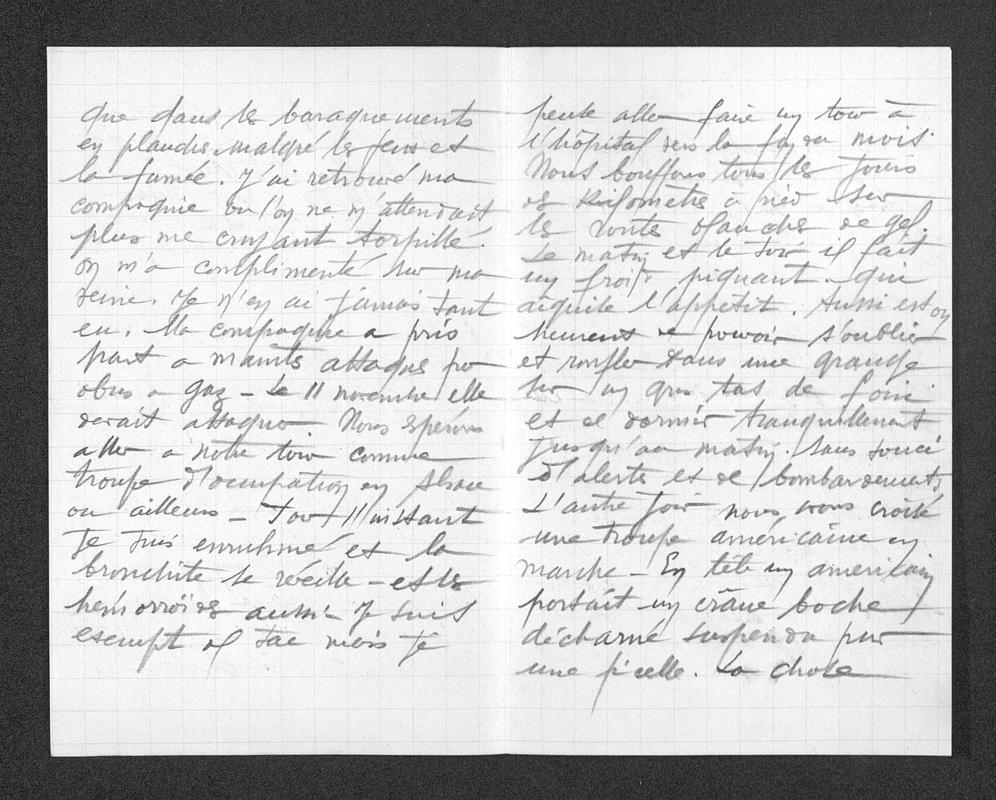 que dans les baraquements
en planches malgré les feux et
la fumée. J'ai retrouvé ma
compagnie où l'on ne m'attendait
plus me croyant torpillé.
On m'a complimenté sur ma
veine. Je n'en ai jamais tant
eu. Ma compagnie a pris
part a maints attaques par
obus a gaz - Le 11 novembre elle
devait attaquer Nous espérons
aller a notre tour comme
troupe d'occupation en Alsace
ou ailleurs - Pour l'instant
Je suis enrhumé et la
bronchite se réveille - et les
hémorroïdes aussi - Je suis
exempt de sac mais Je
peute aller faire un tour à
l'hôpital vers la fin du mois
Nous bouffons tous les jours
des Kilomètres a pied sur
les routes blanches de gel.
Le matin et le soir il fait
un froid piquant. qui
aiguise l'appétit. Aussi est on
heureux de pouvoir s'oublier
et ronfler dans une grange
sur un gros tas de foin
et de dormir tranquillement
jusqu'au matin. sans souci
d'alerte et de bombardements
L'autre jour nous avons croisé
une troupe américaine en
marche - En tête un américain
portait un crâne boche
décharné suspendu par
une ficelle. La chose